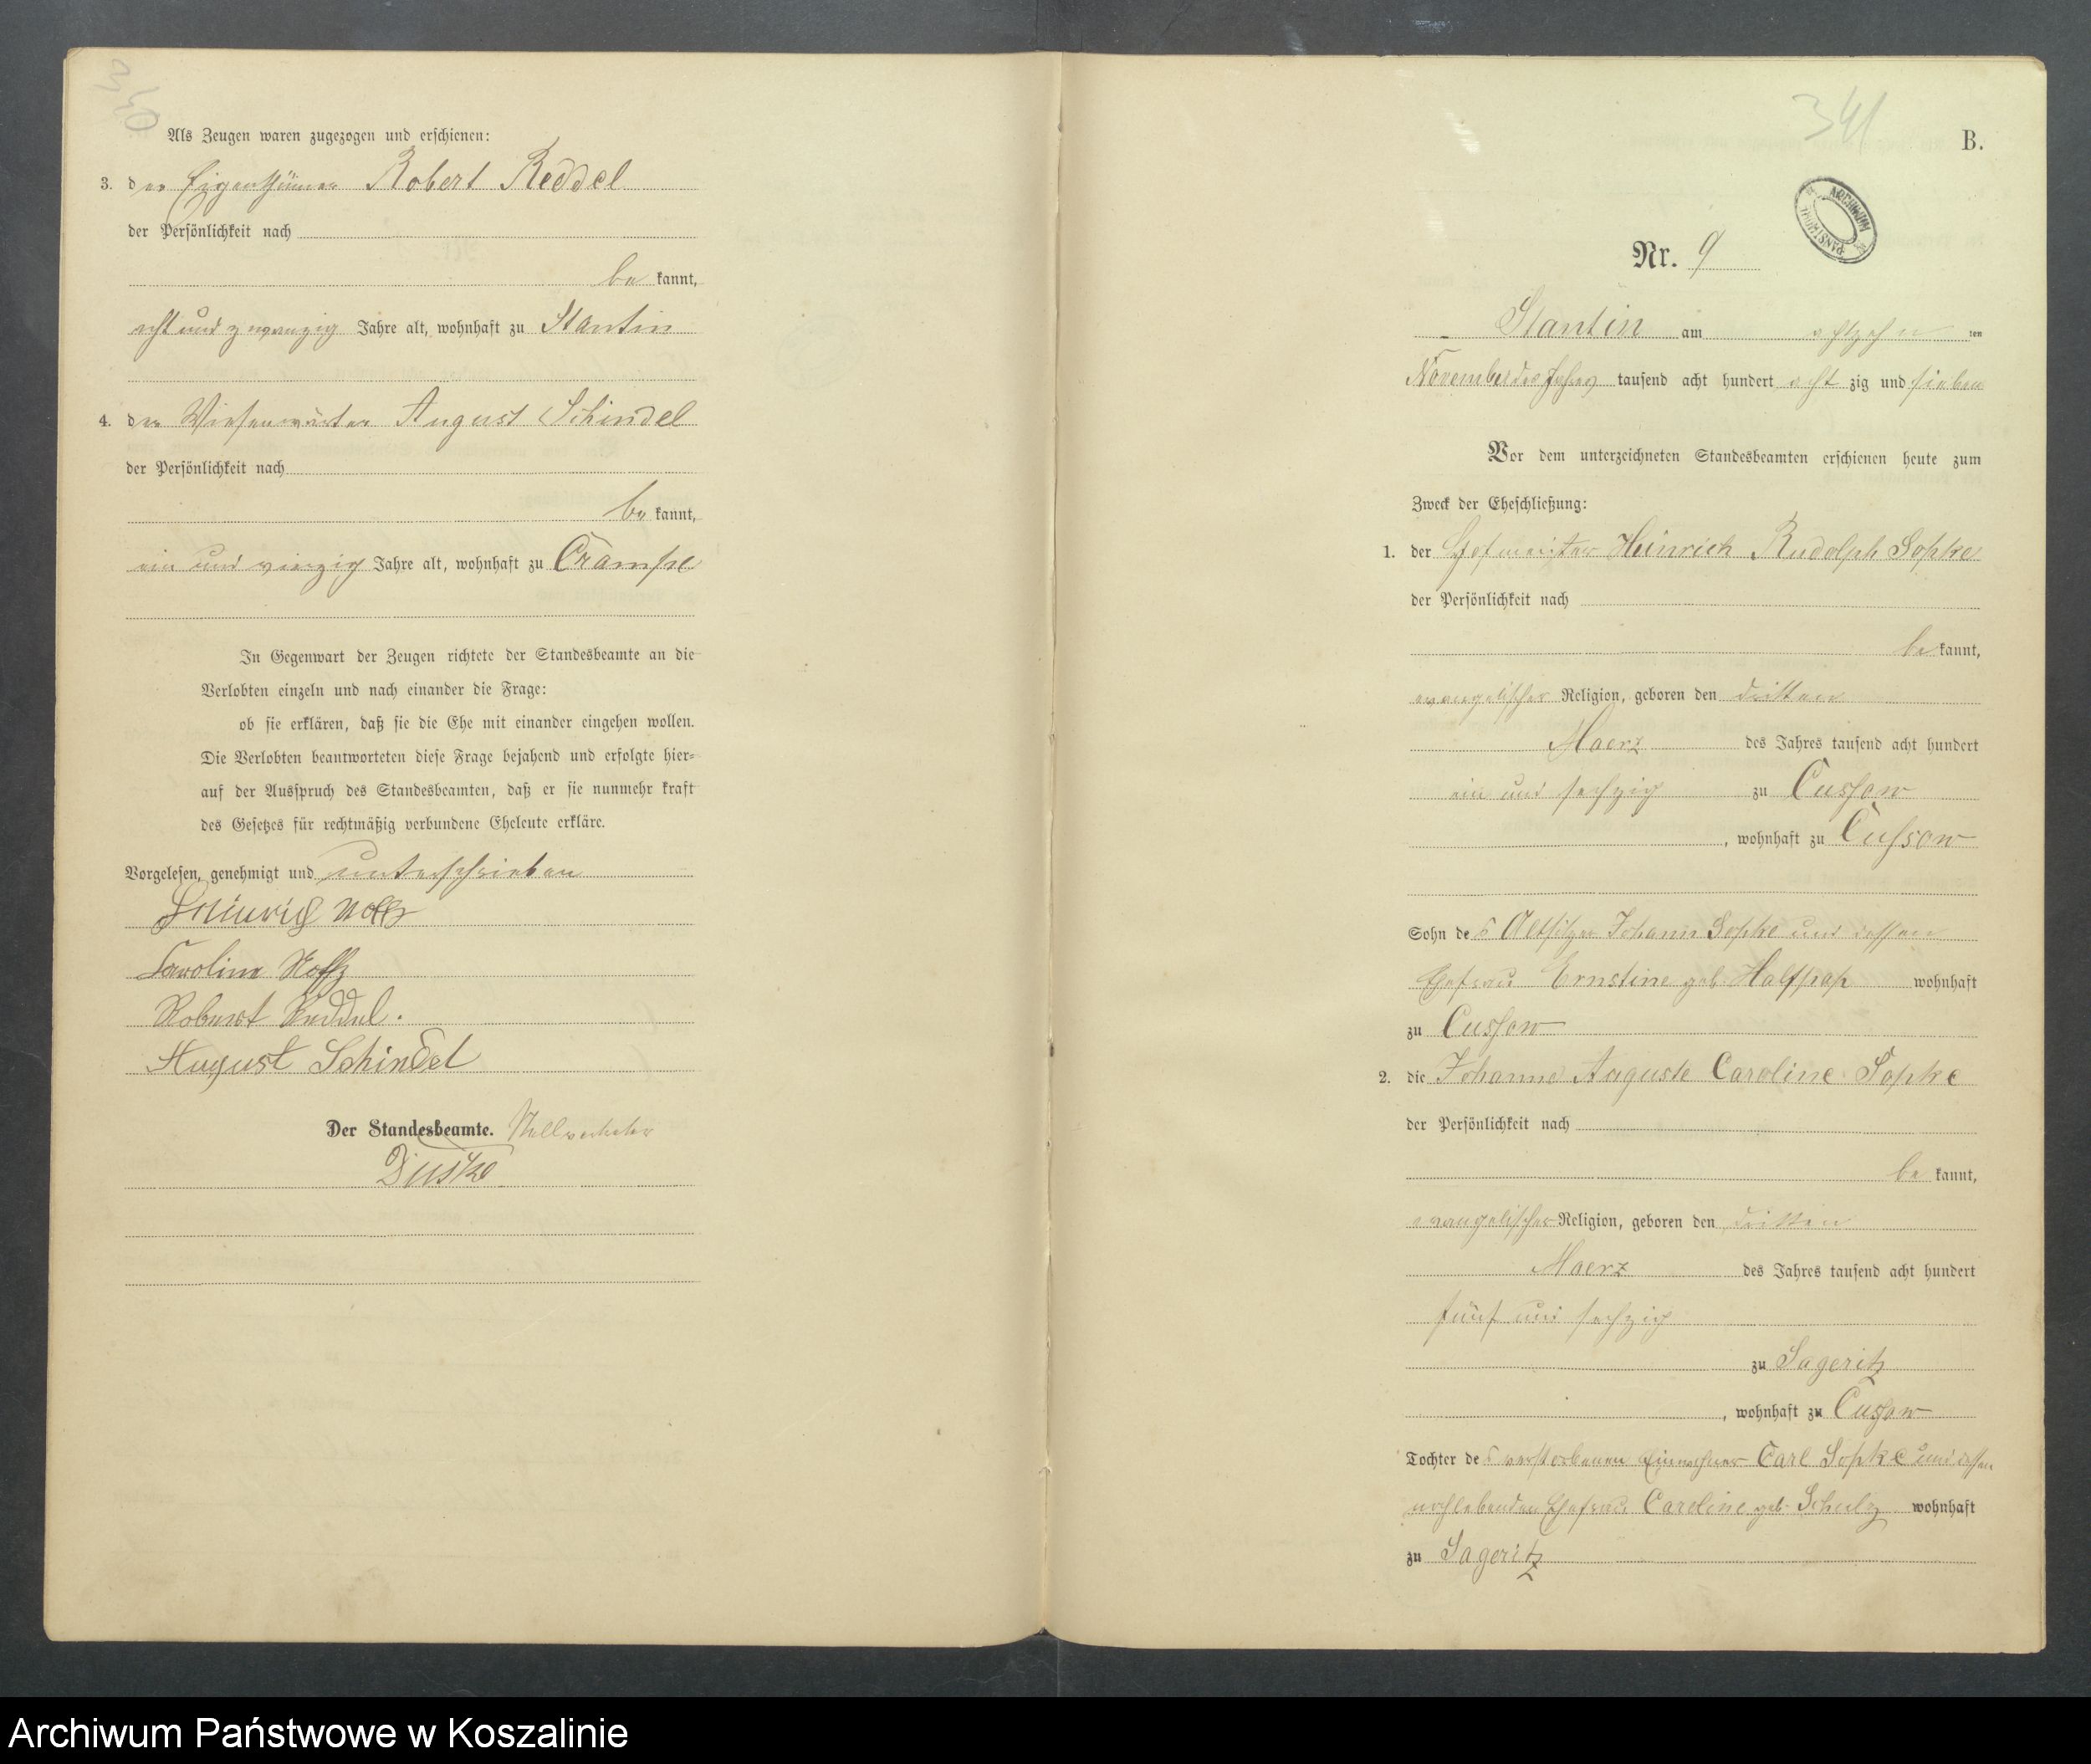 330
Als Zeugen waren zugezogen und erschienen:
3. der Eigenthümer Robert Reddel
der Persönlichkeit nach
be kannt,
acht und zwanzig Jahre alt, wohnhaft zu Stantin
4. der Wiesenwärter August Schindel
der Persönlichkeit nach
be kannt,
ein und vierzig Jahre alt, wohnhaft zu Crampe
In Gegenwart der Zeugen richtete der Standesbeamte an die
Verlobten einzeln und nach einander die Frage:
ob sie erklären, daß sie die Ehe mit einander eingehen wollen.
Die Verlobten beantworteten diese Frage bejahend und erfolgte hier-
auf der Ausspruch des Standesbeamten, daß er sie nunmehr kraft
des Gesetzes für rechtmäßig verbundene Eheleute erkläre.
Vorgelesen, genehmigt und unterschrieben
Heinrich
Caroline
Robert Reddel.
August Schindel
Der Standesbeamte. Stellvertreter
341
B.
ARCHIWUM PAŃSTWOWE
Nr. 9
Stantin am achtzehn ten
November des Jahres tausend acht hundert acht zig und sieben
Vor dem unterzeichneten Standesbeamten erschienen heute zum
Zweck der Eheschließung:
1. der Hofmeister Heinrich Rudolph Sopke
der Persönlichkeit nach
be kannt,
evangelischer Religion, geboren den dritten
Maerz des Jahres tausend acht hundert
ein und sechzig zu Cussow
, wohnhaft zu Cussow
Sohn des Altsitzer Johann Sopke und dessen
Ehefrau Ernstine geb. Halfpap wohnhaft
zu Cussow
2. die Johanne Auguste Caroline Sopke
der Persönlichkeit nach
be kannt,
evangelischer Religion, geboren den dritten
Maerz des Jahres tausend acht hundert
fünf und sechzig
zu Sageritz
, wohnhaft zu Cussow
Tochter des verstorbenen Einwohner Carl Sopke und dessen
nochlebenden Ehefrau Caroline geb. Schulz wohnhaft
zu Sageritz
Archiwum Państwowe w Koszalinie